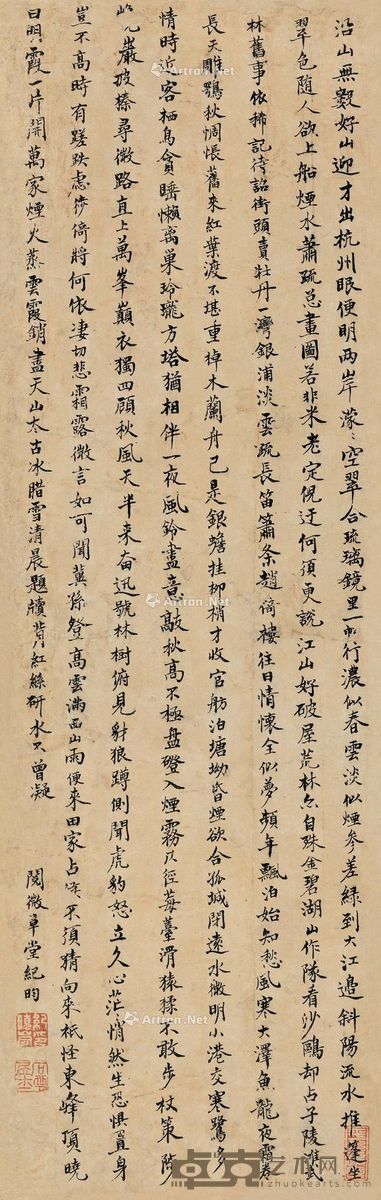 沿山無數好山迎才出杭州眼便明兩岸濛〻空翠合琉璃鏡里一帆行濃似春雲淡似煙參差綠到大江邊斜陽流水推篷坐
翠色随人欲上船煙水蕭疏总畫圖若非米老定倪迂何須更說江山好破屋荒林亦自殊金碧湖山作隊看沙鷗却占子陵灘武
林舊事依稀記待詔街頭賣牡丹一灣銀浦淡雲疏長笛蕭条趙倚樓往日情懷全似夢頻年飄泊始知愁風寒大澤魚龍夜霜卷
長天雕鶚秋惆悵舊来紅葉渡不堪重棹木蘭舟已是銀蟾挂柳梢才收官舫泊塘坳昏煙欲合孤城閉遠水微明小港交寒鷺多
情時近客栖鳥貪睡懶离巢玲瓏方塔猶相伴一夜風鈴盡意敲秋高不極盤磴入煙霧仄径莓薹滑猿猱不敢步杖策陟
巖披榛尋微路直上萬峯巔衣獨四顧秋風天半来奋迅號林樹俯見豺狼蹲側聞虎豹怒立久心茫〻悄然生恐惧置身
豈不高時有蹉跌慮徙倚將何依凄切悲霜露微言如可聞冀孫登高雲满西山雨便来田家占候不須猜向来祇怪東峰頂曉
日明霞一片開萬家煙火蒸雲霞銷盡天山太古冰腊雪清晨題牘背紅絲研水不曾凝
閱微草堂紀昀
Artron.Net
卓克艺术网
www.zhuokearts.com